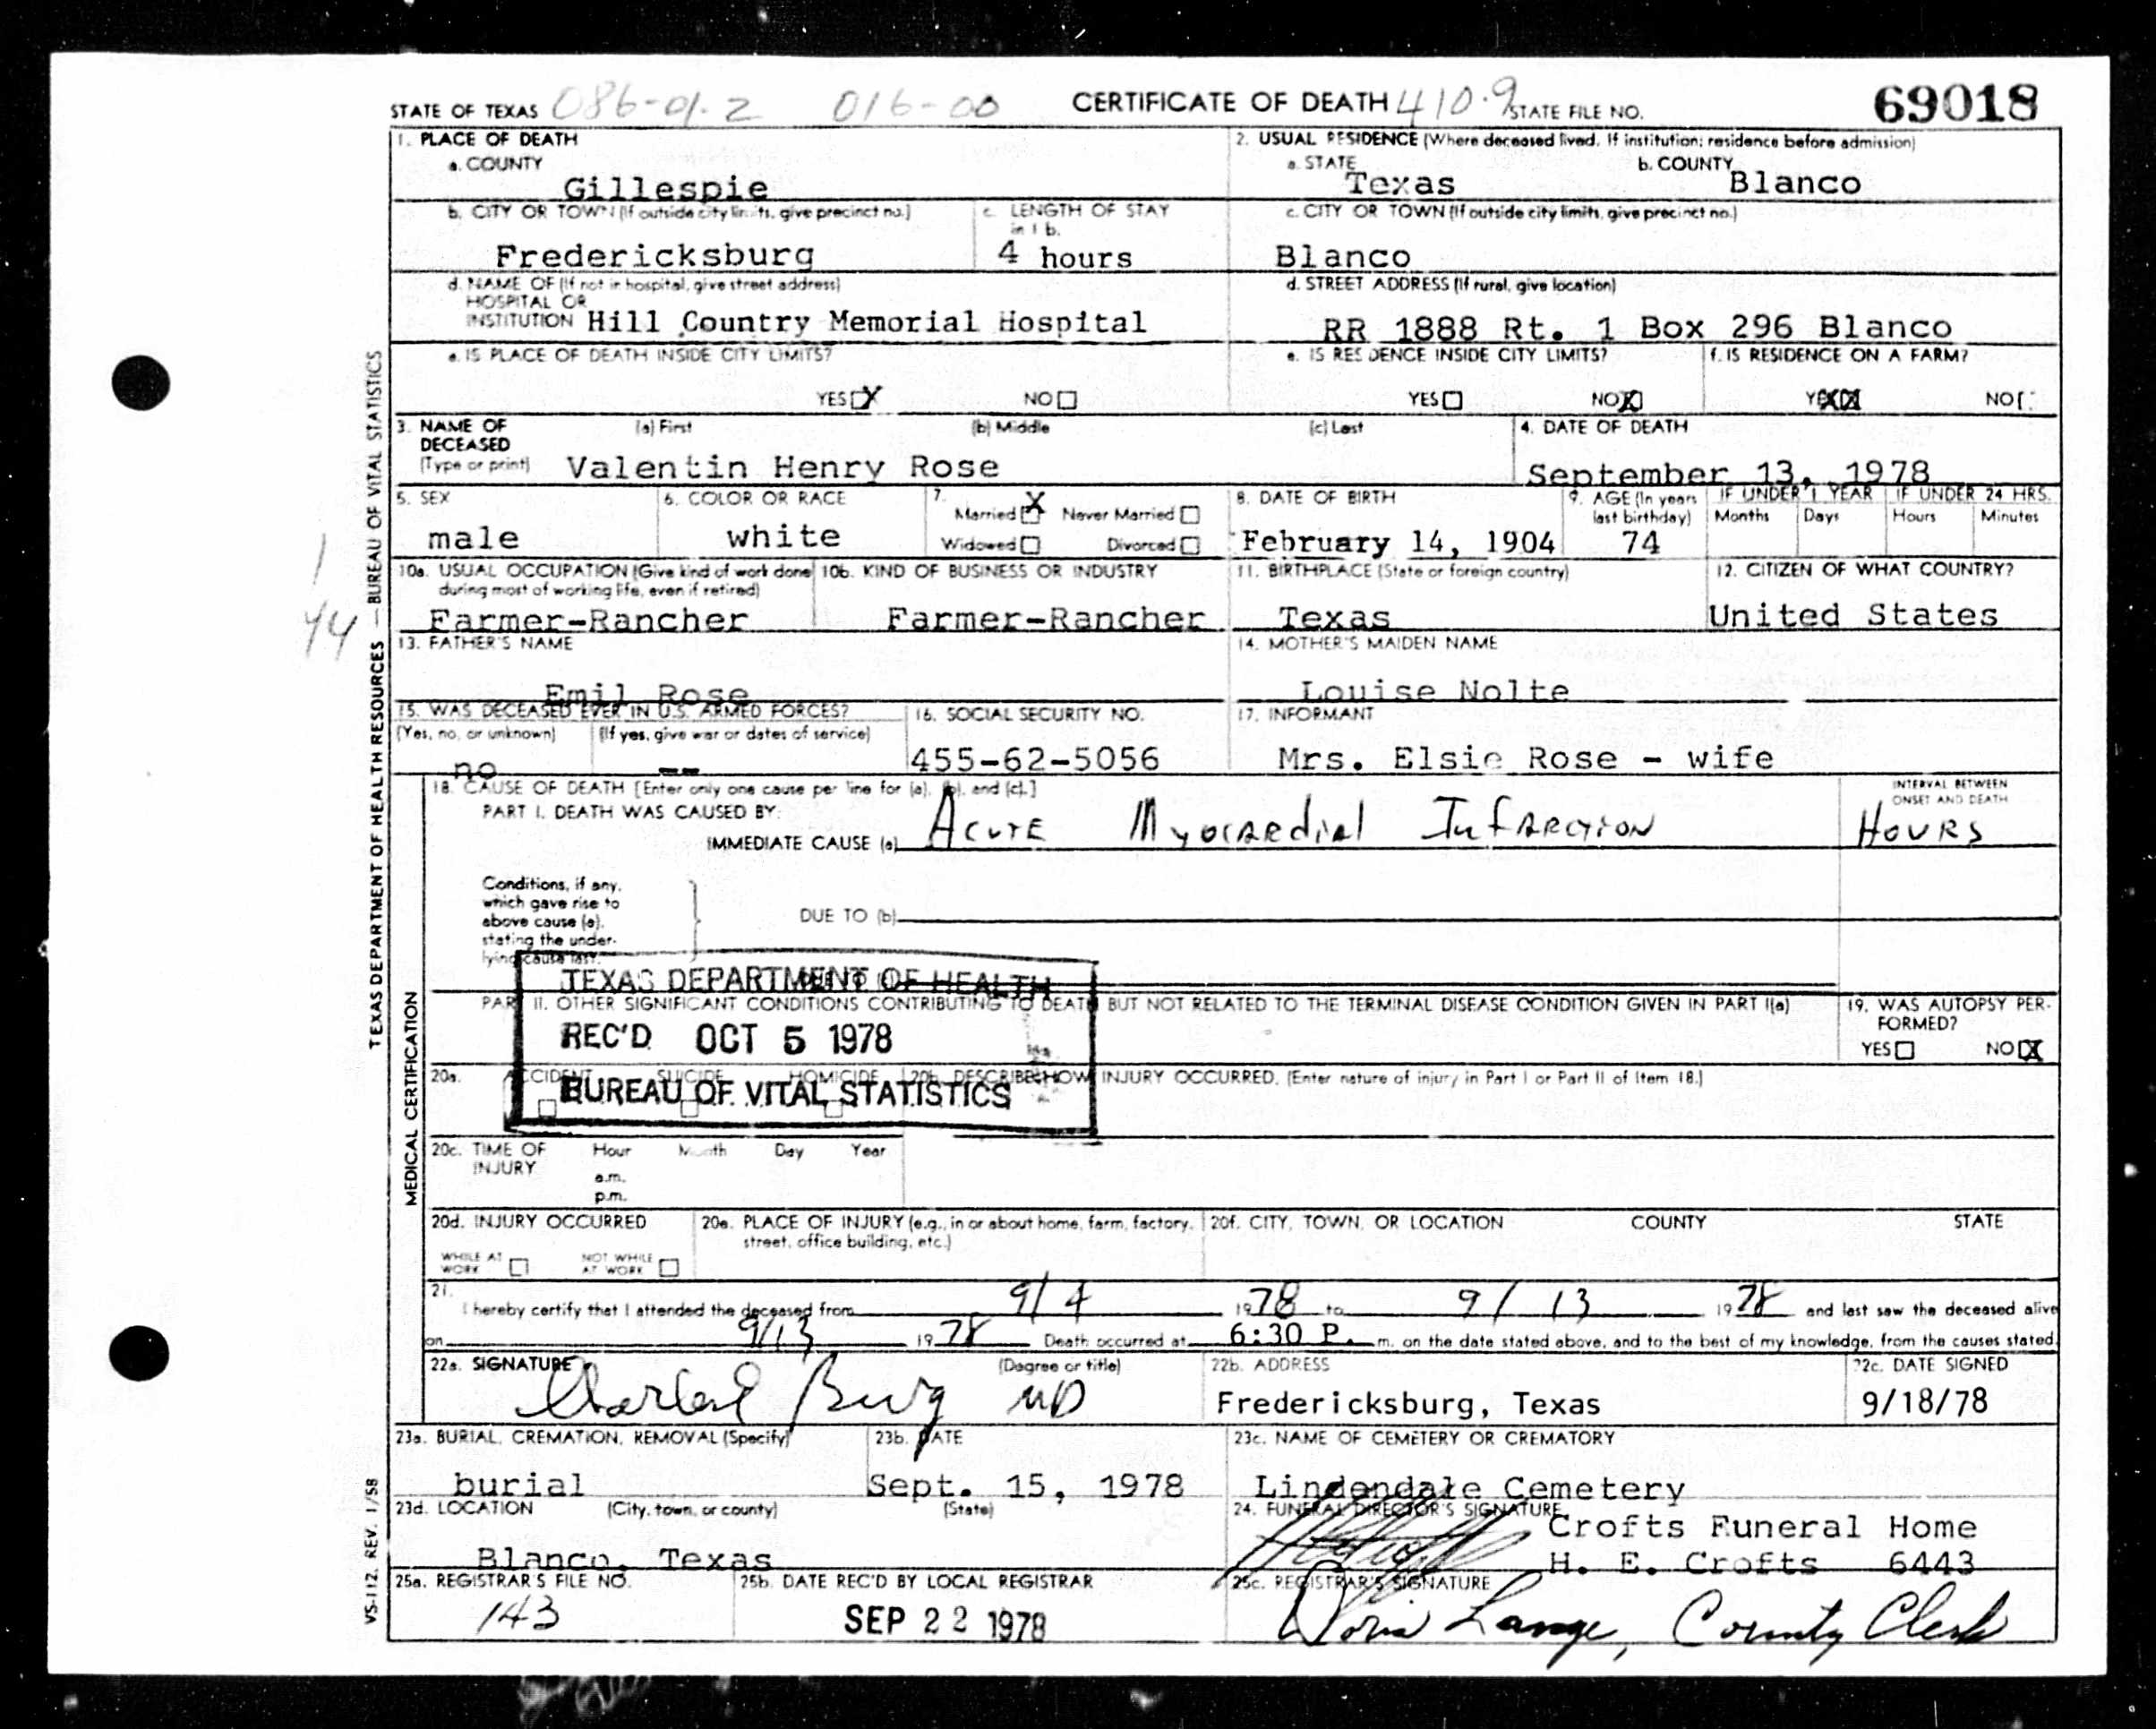 STATE OF TEXAS 086-01-2 016-00 CERTIFICATE OF DEATH 410.9 STATE FILE NO. 69018
1. PLACE OF DEATH
a. COUNTY
Gillespie
2. USUAL RESIDENCE (Where deceased lived. If institution: residence before admission)
a. STATE
Texas
b. COUNTY
Blanco
b. CITY OR TOWN (If outside city limits, give precinct no.)
Fredericksburg
c. LENGTH OF STAY
in 1 b.
4 hours
c. CITY OR TOWN (If outside city limits, give precinct no.)
Blanco
d. NAME OF (If not in hospital, give street address)
HOSPITAL OR
INSTITUTION Hill Country Memorial Hospital
d. STREET ADDRESS (If rural, give location)
RR 1888 Rt. 1 Box 296 Blanco
e. IS PLACE OF DEATH INSIDE CITY LIMITS?
YES X NO
e. IS RESIDENCE INSIDE CITY LIMITS?
YES NO X
f. IS RESIDENCE ON A FARM?
YES XX NO
3. NAME OF
DECEASED
(Type or print)
(a) First (b) Middle (c) Last
Valentin Henry Rose
4. DATE OF DEATH
September 13, 1978
5. SEX
male
6. COLOR OR RACE
white
7.
Married X Never Married
Widowed Divorced
8. DATE OF BIRTH
February 14, 1904
9. AGE (In years
last birthday)
74
IF UNDER 1 YEAR
Months Days
IF UNDER 24 HRS.
Hours Minutes
10a. USUAL OCCUPATION (Give kind of work done
during most of working life, even if retired)
Farmer-Rancher
10b. KIND OF BUSINESS OR INDUSTRY
Farmer-Rancher
11. BIRTHPLACE (State or foreign country)
Texas
12. CITIZEN OF WHAT COUNTRY?
United States
13. FATHER'S NAME
Emil Rose
14. MOTHER'S MAIDEN NAME
Louise Nolte
15. WAS DECEASED EVER IN U.S. ARMED FORCES?
(Yes, no, or unknown) (If yes, give war or dates of service)
no --
16. SOCIAL SECURITY NO.
455-62-5056
17. INFORMANT
Mrs. Elsie Rose - wife
18. CAUSE OF DEATH [Enter only one cause per line for (a), (b), and (c).]
PART I. DEATH WAS CAUSED BY:
IMMEDIATE CAUSE (a) Acute Myocardial Infarction
INTERVAL BETWEEN
ONSET AND DEATH
Hours
Conditions, if any,
which gave rise to
above cause (a),
stating the under-
lying cause last.
DUE TO (b)
TEXAS DEPARTMENT OF HEALTH
REC'D OCT 5 1978
BUREAU OF VITAL STATISTICS
PART II. OTHER SIGNIFICANT CONDITIONS CONTRIBUTING TO DEATH BUT NOT RELATED TO THE TERMINAL DISEASE CONDITION GIVEN IN PART I(a)
19. WAS AUTOPSY PER-
FORMED?
YES NO X
20a. ACCIDENT SUICIDE HOMICIDE
20b. DESCRIBE HOW INJURY OCCURRED. (Enter nature of injury in Part I or Part II of Item 18.)
20c. TIME OF
INJURY
Hour Month Day Year
a.m.
p.m.
20d. INJURY OCCURRED
WHILE AT
WORK
NOT WHILE
AT WORK
20e. PLACE OF INJURY (e.g., in or about home, farm, factory,
street, office building, etc.)
20f. CITY, TOWN, OR LOCATION COUNTY STATE
21.
I hereby certify that I attended the deceased from 9/4 1978 to 9/13 1978 and last saw the deceased alive
on 9/13 1978 Death occurred at 6:30 P. m. on the date stated above, and to the best of my knowledge, from the causes stated.
22a. SIGNATURE (Degree or title)
Charles Burg MD
22b. ADDRESS
Fredericksburg, Texas
22c. DATE SIGNED
9/18/78
23a. BURIAL, CREMATION, REMOVAL (Specify)
burial
23b. DATE
Sept. 15, 1978
23c. NAME OF CEMETERY OR CREMATORY
Lindendale Cemetery
23d. LOCATION (City, town, or county) (State)
Blanco, Texas
24. FUNERAL DIRECTOR'S SIGNATURE
Crofts Funeral Home
H. E. Crofts 6443
25a. REGISTRAR'S FILE NO.
143
25b. DATE REC'D BY LOCAL REGISTRAR
SEP 22 1978
25c. REGISTRAR'S SIGNATURE
Doris Lange, County Clerk
TEXAS DEPARTMENT OF HEALTH RESOURCES — BUREAU OF VITAL STATISTICS
MEDICAL CERTIFICATION
VS-112 REV. 1/58
1
44